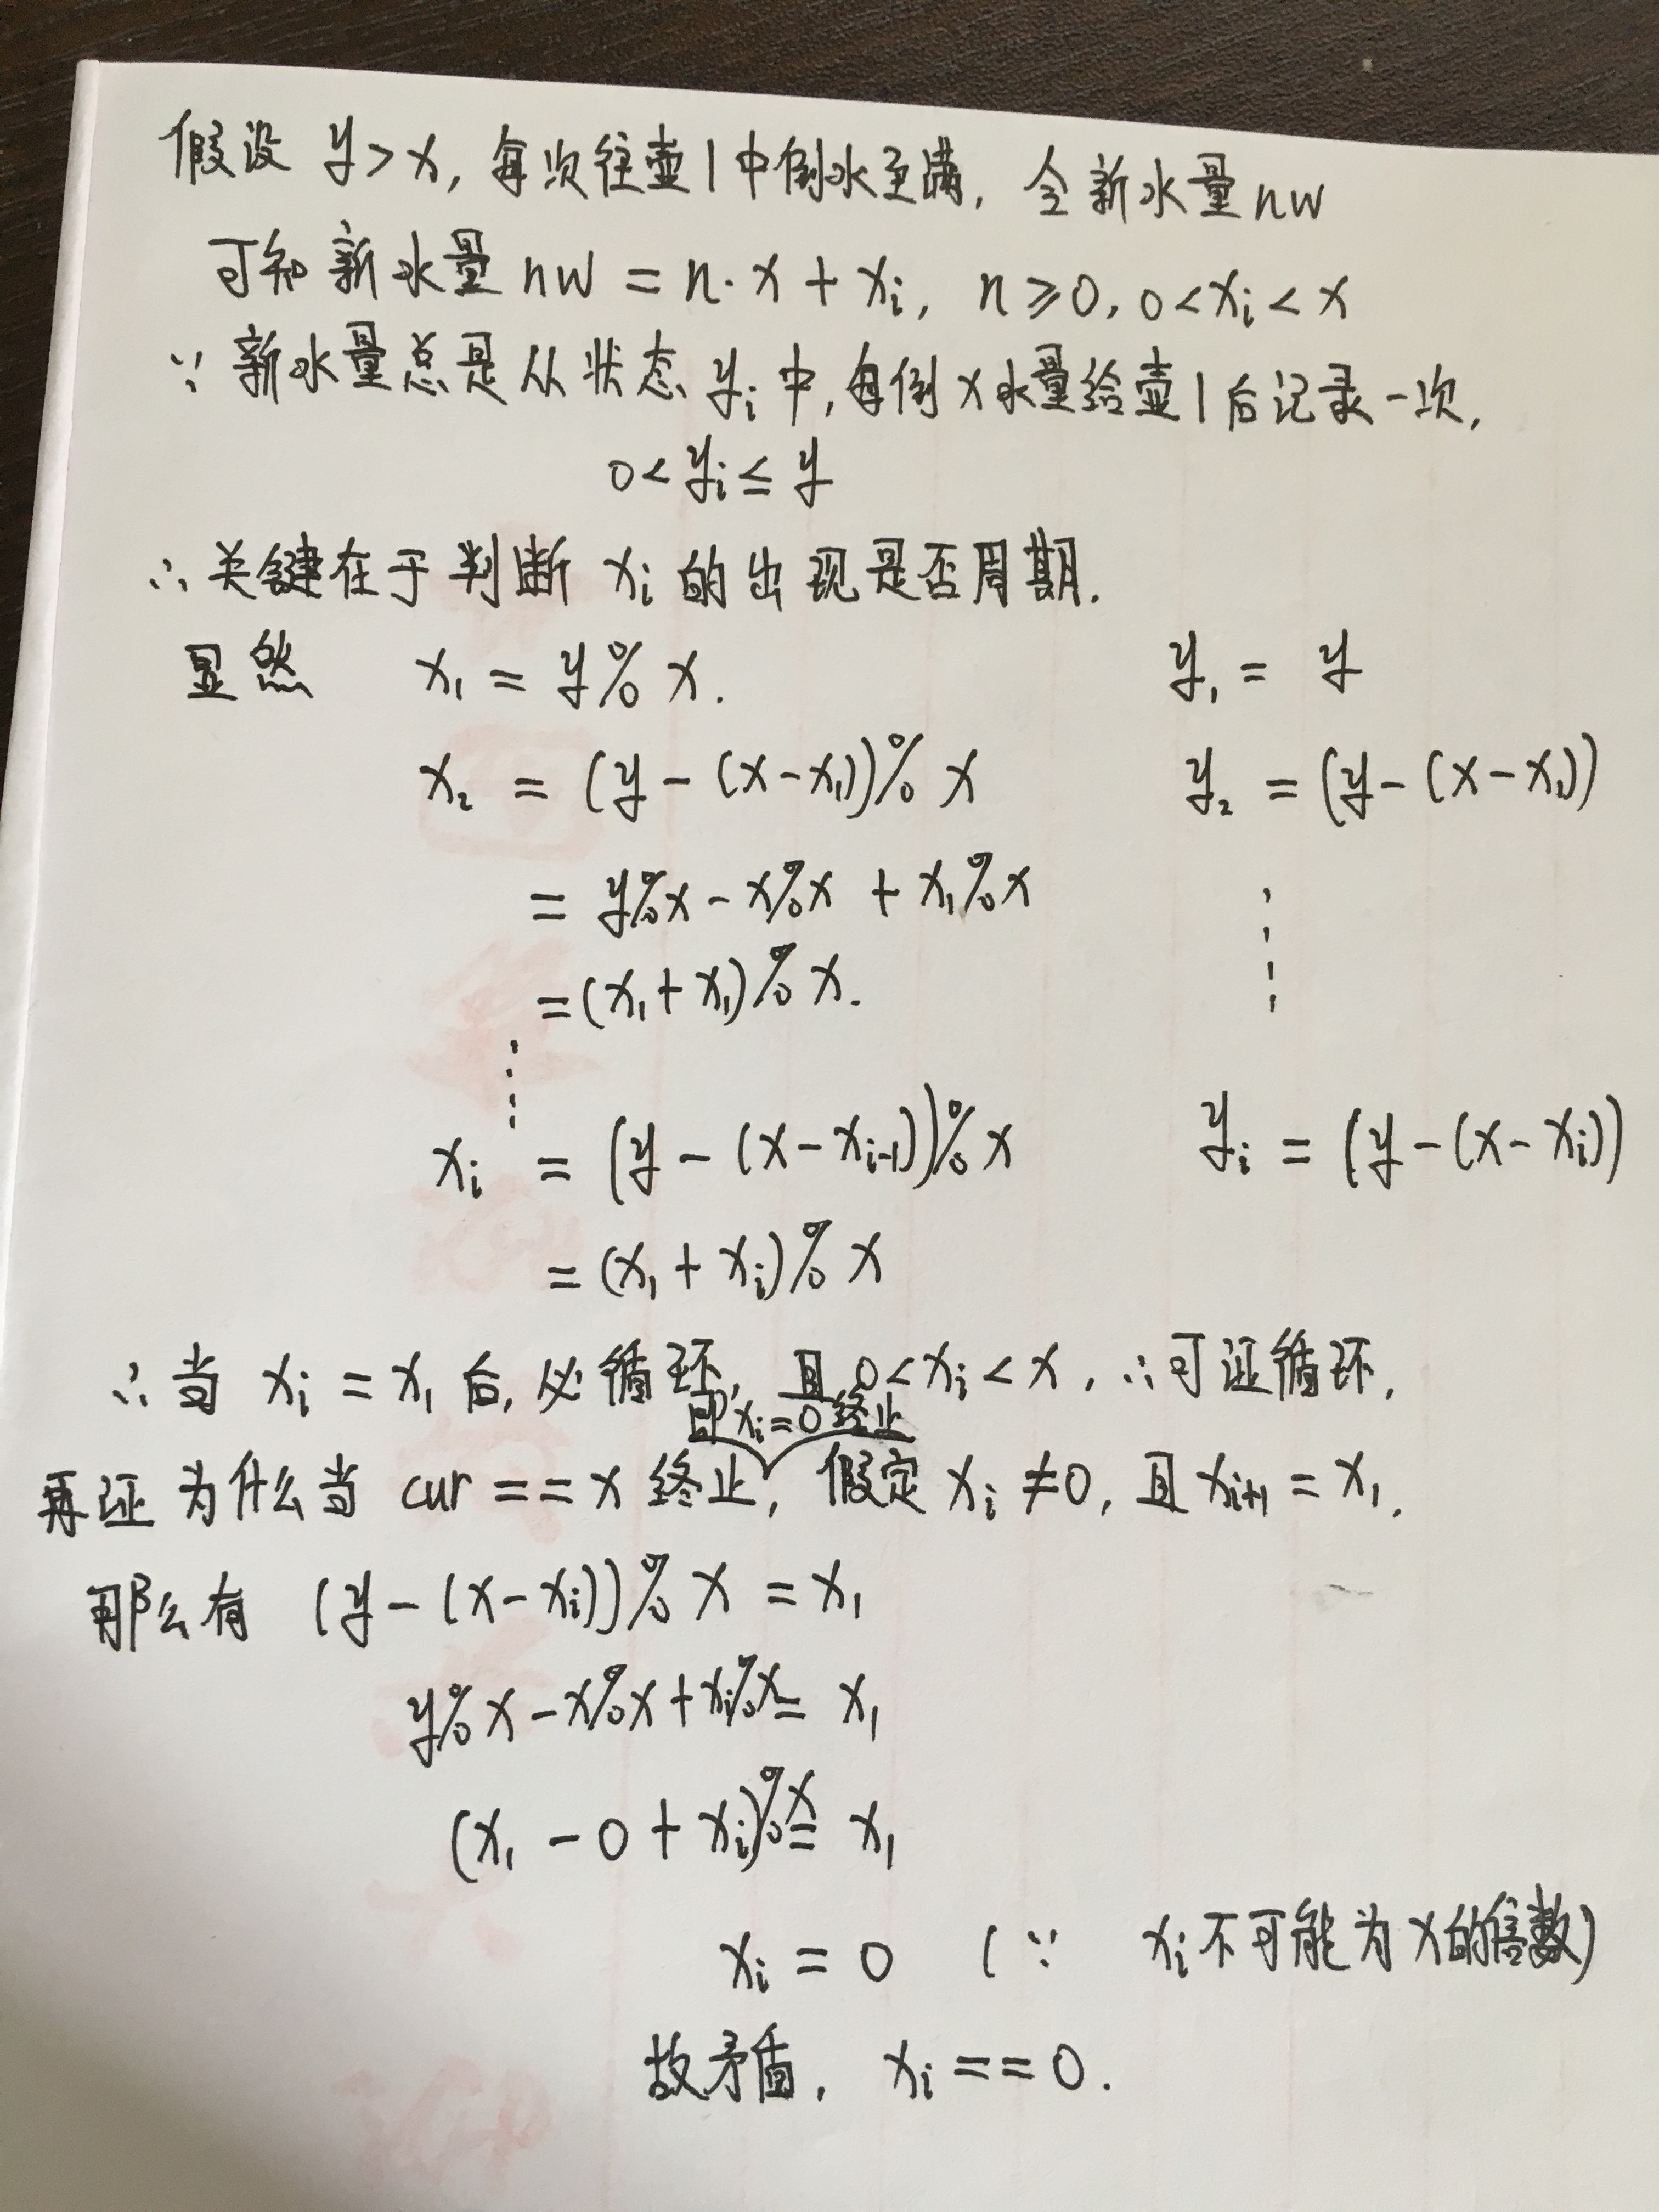 假设 y>x, 每次往壶1中倒水至满, 令新水量 nw
可知新水量 nw = n·x + xᵢ, n≥0, 0<xᵢ<x
∵ 新水量总是从状态 yᵢ 中, 每倒 x 水量给壶1后记录一次,
0<yᵢ≤y
∴ 关键在于判断 xᵢ 的出现是否周期.
显然 x₁ = y % x. y₁ = y
x₂ = (y - (x-x₁)) % x y₂ = (y-(x-x₁))
= y%x - x%x + x₁%x
= (x₁+x₁) % x.
xᵢ = (y - (x-xᵢ₋₁)) % x yᵢ = (y-(x-xᵢ))
= (x₁+xᵢ) % x
∴ 当 xᵢ = x₁ 后, 必循环, 且 0<xᵢ<x, ∴ 可证循环,
即 xᵢ=0 终止
再证 为什么当 cur == x 终止, 假定 xᵢ≠0, 且 xᵢ₊₁ = x₁.
那么有 (y-(x-xᵢ)) % x = x₁
y%x - x%x + xᵢ%x = x₁
(x₁ - 0 + xᵢ)%x = x₁
xᵢ = 0 (∵ xᵢ不可能为x的倍数)
故矛盾, xᵢ == 0.